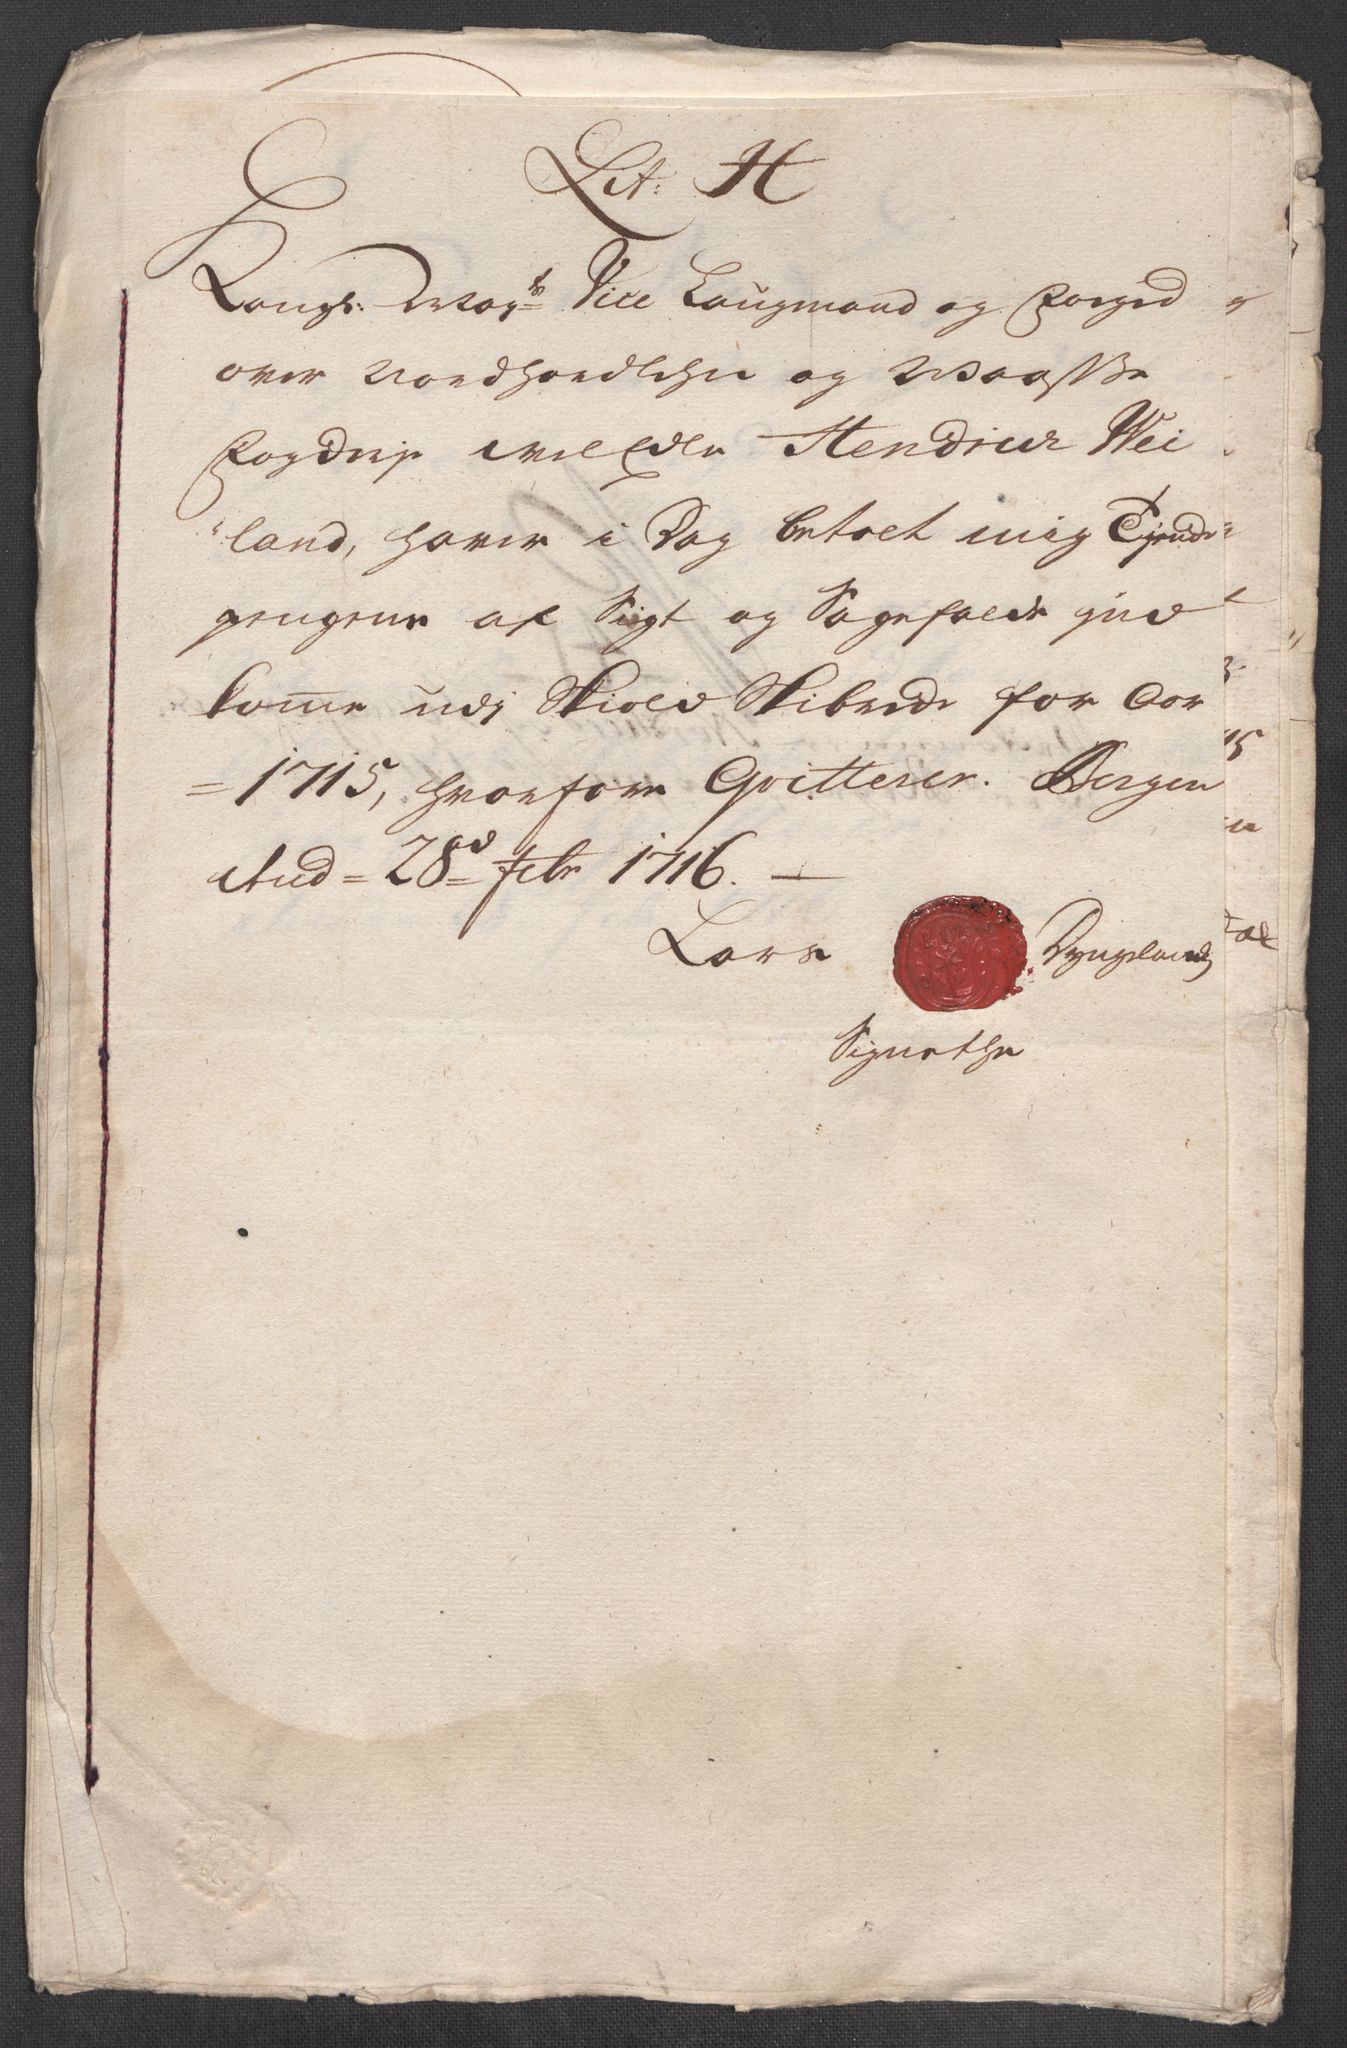 Lit: H
Kongl: Mayts Vice Laugmand og Foeged
over Nordhordlehn og Waasse
Fogderje velEdle Hendrich Wei
land, haver i Dag betalt mig Tjende
pengene af Sigt og Sagefalds ind
komme udj Skiold Skibrede for Aar
= 1715, hvorfore Qvitterer. Bergen
d = 28d = Febr 1716. —
Lars Dyngeland
Signethe